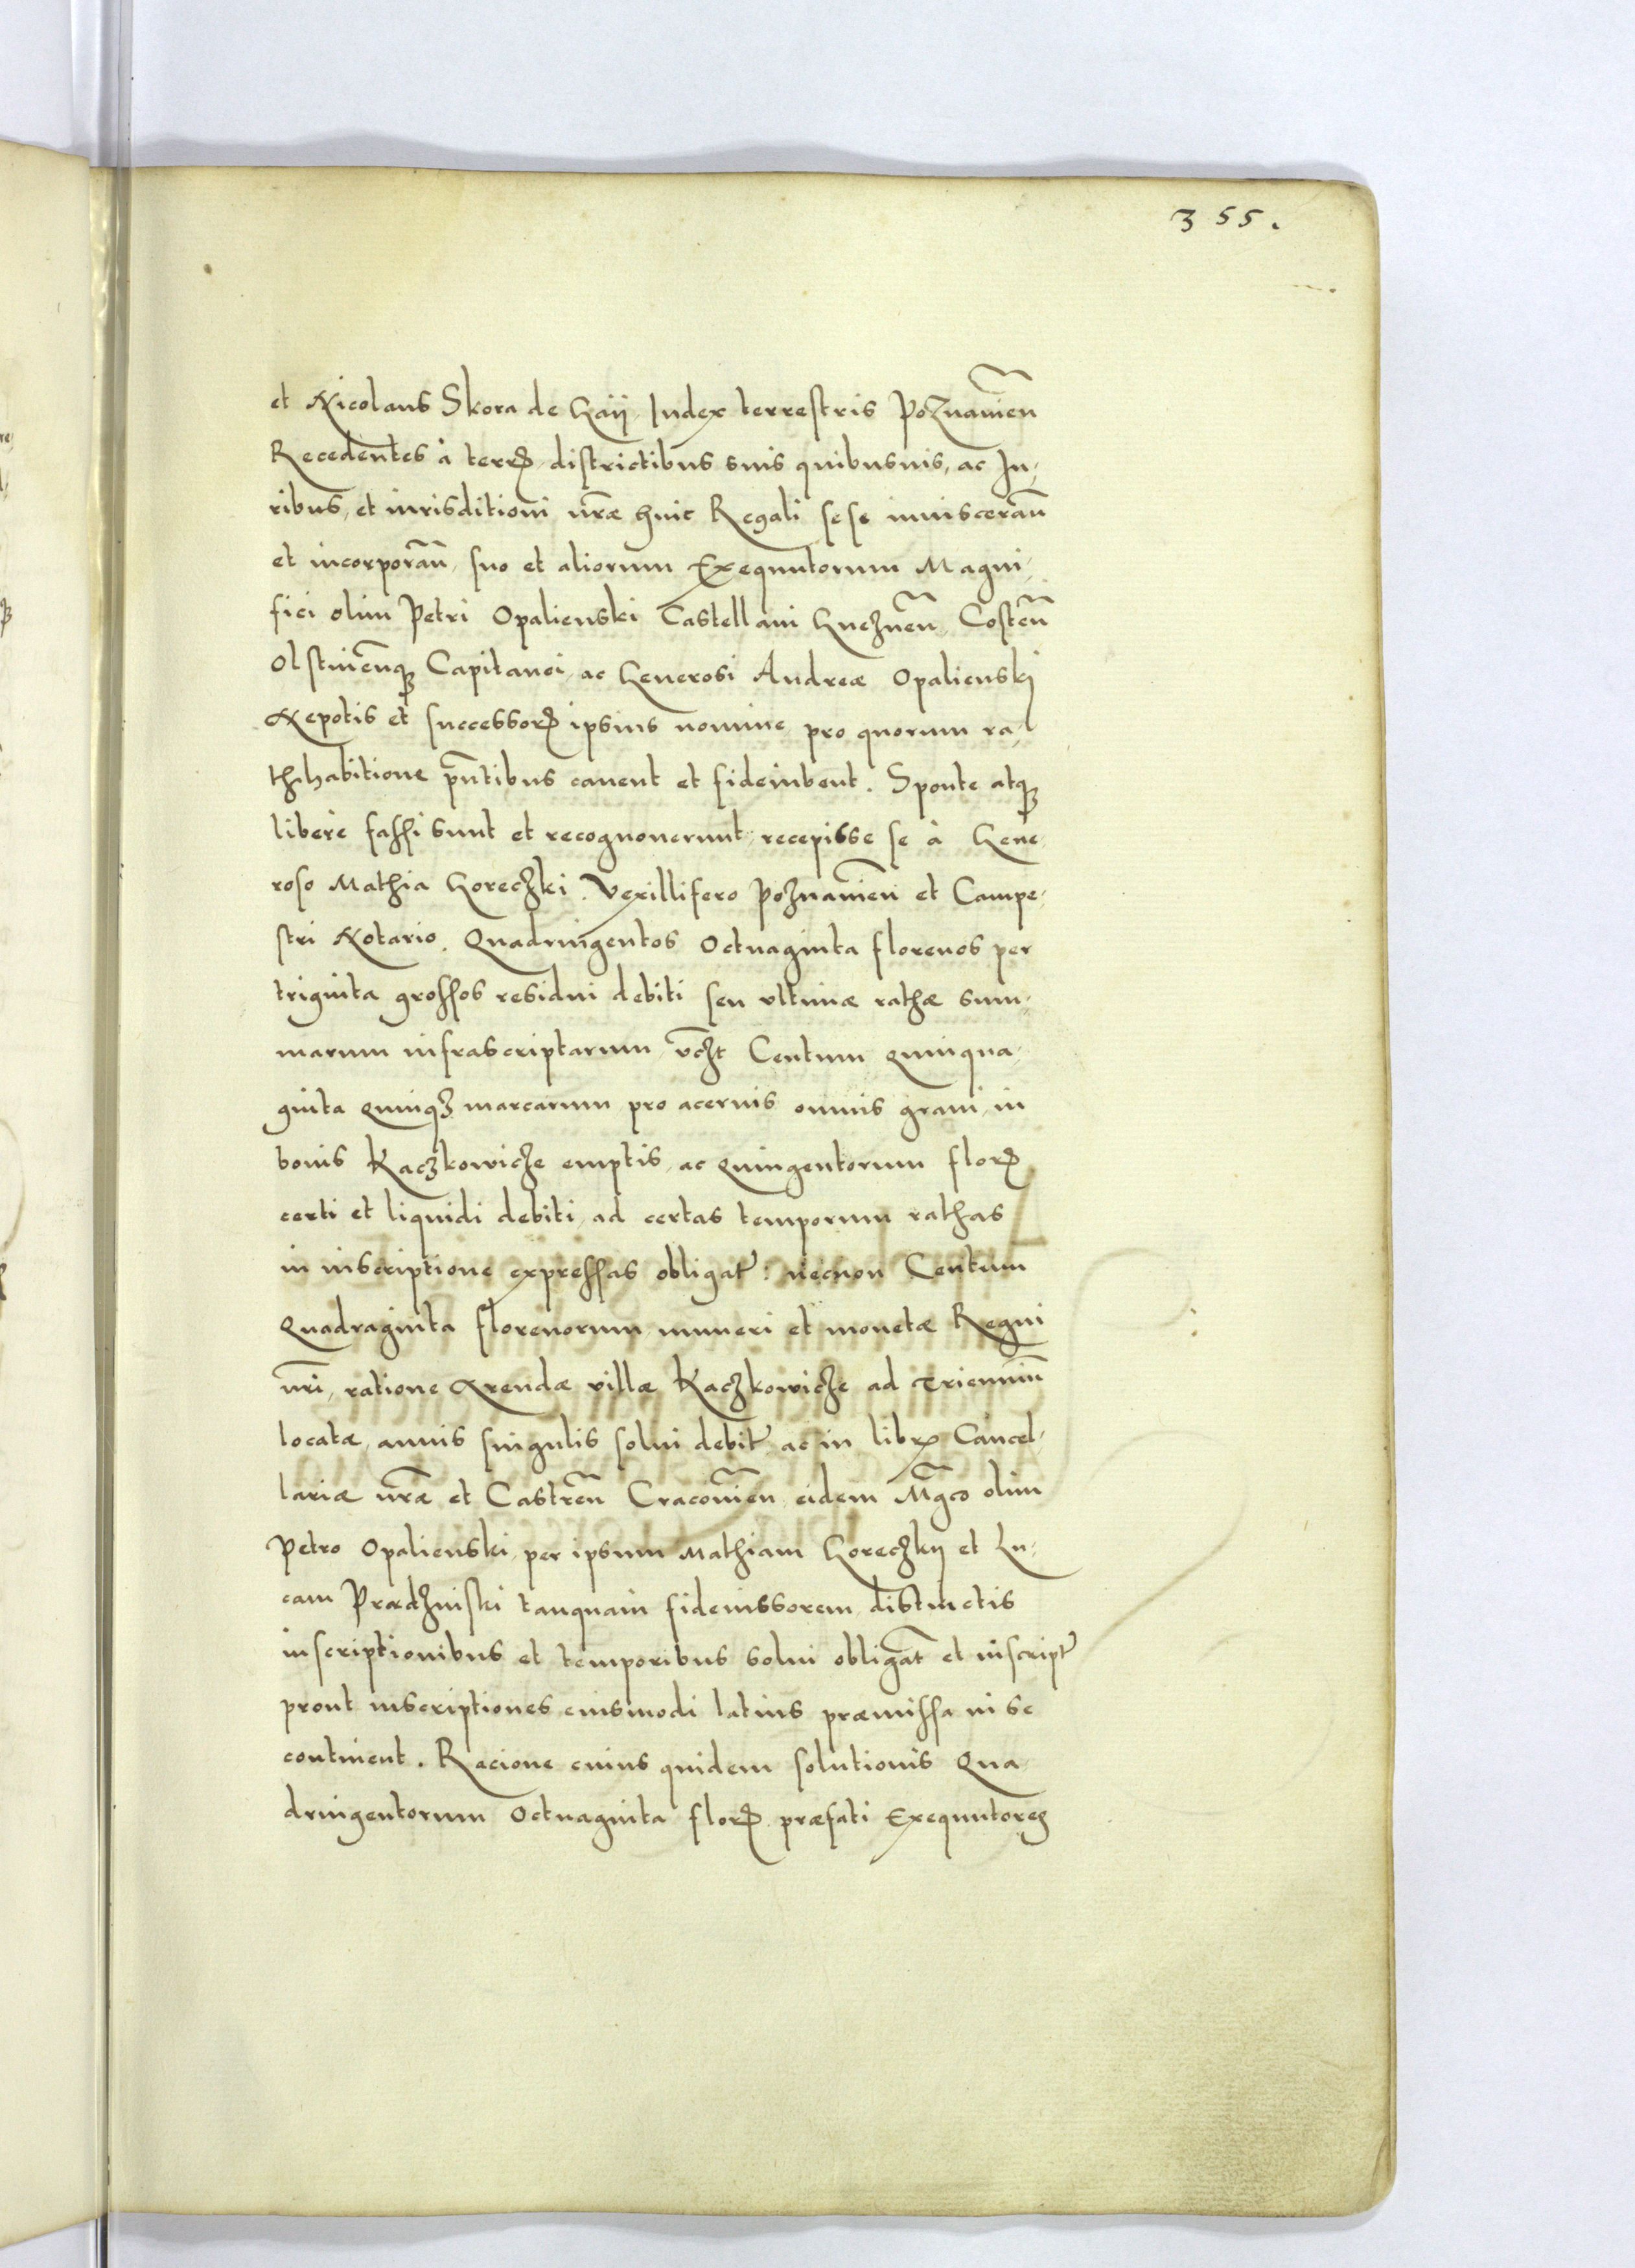 355.
et Nicolaus Skora de Gaÿ Iudex terrestris Poznanien̄
Recedentes à terrꝝ districtibus suis quibusuis, ac Iu-
ribus, et iurisditioni nr̄æ huic Regali sese inuisceran̄
et incorporan̄, suo et aliorum Exequutorum Magni-
fici olim Petri Opalienski Castellani Gneznen̄ Costen̄
Olstinen̄qꝫ Capitanei, ac Generosi Andreæ Opalienskj
Nepotis et successorꝝ ipsius nomine pro quorum ra-
thihabitione pn̄tibus cauent et fideiubent. Sponte atqꝫ
liberè fassi sunt et recognouerunt recepisse se à Gene-
roso Mathia Goreczki Vexillifero Poznanien̄ et Campe-
stri Notario. Quadringentos Octuaginta florenos per
triginta grossos residui debiti seu vltimæ rathæ sum-
marum infrascriptarum, vczt Centum Quinqua-
ginta Quinqꝫ marcarum pro aceruis omnis grani in
bonis Kaczkowicze emptis, ac Quingentorum florꝝ
certi et liquidi debiti, ad certas temporum rathas
in inscriptione expressas obligat̄: necnon Centum
Quadraginta florenorum numeri et monetæ Regni
nr̄i, ratione Arendæ villæ Kaczkowicze ad Trienniū
locatæ, annis singulis solui debit̄ ac in librꝭ Cancel-
lariæ nr̄æ et Castren̄ Cracouien̄ eidem Mgc̄o olim
Petro Opalienski, per ipsum Mathiam Goreczkÿ et Lu-
cam Prædzinski tanquam fideiussorem distinctis
inscriptionibus et temporibus solui obligat̄ et inscript̄
prout inscriptiones eiusmodi latius præmissa in se
continent. Racione cuius quidem solutionis Qua-
dringentorum Octuaginta florꝝ præfati Exequutores